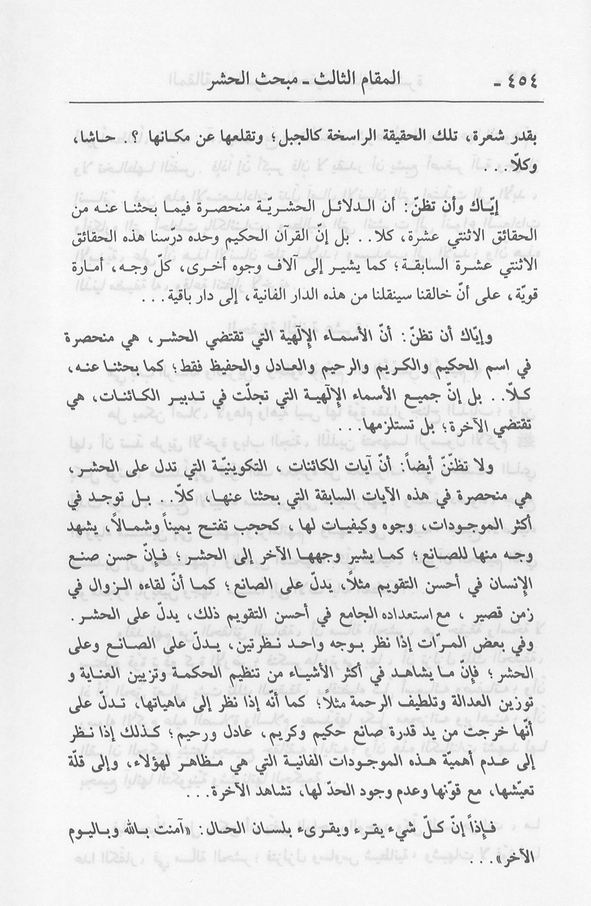 ٤٥٤ - المقام الثالث ـ مبحث الحشر
بقدر شعرة، تلك الحقيقة الراسخة كالجبل؛ وتقلعها عن مكانها ؟. حاشا،
وكلّا...
إيّاك وأن تظنّ: أن الدلائل الحشريّة منحصرة فيما بحثنا عنه من
الحقائق الاثنتي عشرة، كلا.. بل إنّ القرآن الحكيم وحده درّسنا هذه الحقائق
الاثنتي عشرة السابقة؛ كما يشير إلى آلاف وجوه أخرى، كلّ وجه، أمارة
قويّة، على أنّ خالقنا سينقلنا من هذه الدار الفانية، إلى دار باقية...
وإيّاك أن تظنّ: أنّ الأسماء الإلٓهية التي تقتضي الحشر، هي منحصرة
في اسم الحكيم والكريم والرحيم والعادل والحفيظ فقط؛ كما بحثنا عنه،
كلّا.. بل إنّ جميع الأسماء الإلٓهية التي تجلّت في تدبير الكائنات، هي
تقتضي الآخرة؛ بل تستلزمها...
ولا تظنّنّ أيضاً: أنّ آيات الكائنات ، التكوينيّة التي تدل على الحشر،
هي منحصرة في هذه الآيات السابقة التي بحثنا عنها، كلّا.. بل توجد في
أكثر الموجودات، وجوه وكيفيات لها، كحجب تفتح يميناً وشمالاً، يشهد
وجه منها للصانع؛ كما يشير وجهها الآخر إلى الحشر؛ فإنّ حسن صنع
الإنسان في أحسن التقويم مثلاً، يدلّ على الصانع؛ كما أنّ لقاءه الزوال في
زمن قصير ، مع استعداده الجامع في أحسن التقويم ذلك، يدلّ على الحشر.
وفي بعض المرّات إذا نظر بوجه واحد نظرتين، يدلّ على الصانع وعلى
الحشر؛ فإنّ ما يشاهد في أكثر الأشياء من تنظيم الحكمة وتزيين العناية و
توزين العدالة وتلطيف الرحمة مثلاً؛ كما أنه إذا نظر إلى ماهياتها، تدلّ على
أنّها خرجت من يد قدرة صانع حكيم وكريم، عادل ورحيم؛ كذلك إذا نظر
إلى عدم أهميّة هذه الموجودات الفانية التي هي مظاهر لهؤلاء، وإلى قلّة
تعيّشها، مع قوّتها وعدم وجود الحدّ لها، تشاهد الآخرة...
فإذاً إنّ كلّ شيء يقرء ويقرىء بلسان الحال: «آمنت بالله وباليوم
الآخر»...